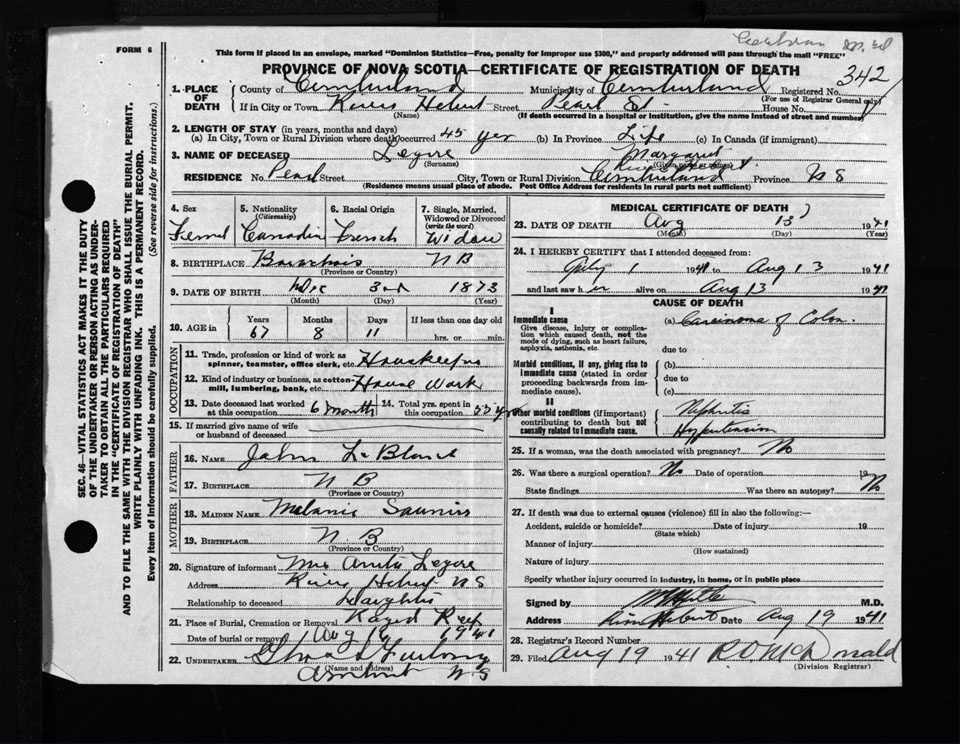 FORM 6
This form if placed in an envelope, marked "Dominion Statistics—Free, penalty for improper use $300," and properly addressed will pass through the mail "FREE"
PROVINCE OF NOVA SCOTIA—CERTIFICATE OF REGISTRATION OF DEATH
342
1. PLACE OF DEATH
County of Cumberland Municipality of Cumberland Registered No.
(For use of Registrar General only)
If in City or Town River Hebert Street Pearl St. House No.
(Name) (If death occurred in a hospital or institution, give the name instead of street and number)
2. LENGTH OF STAY (in years, months and days)
(a) In City, Town or Rural Division where death occurred 45 yrs (b) In Province Life (c) In Canada (if immigrant)
3. NAME OF DECEASED Legere Margaret
(Surname) (Given or names)
RESIDENCE No. Pearl Street City, Town or Rural Division River Hebert Cumberland Province N S
(Residence means usual place of abode. Post Office Address for residents in rural parts not sufficient)
SEC. 46—VITAL STATISTICS ACT MAKES IT THE DUTY
OF THE UNDERTAKER OR PERSON ACTING AS UNDER-
TAKER TO OBTAIN ALL THE PARTICULARS REQUIRED
IN THE "CERTIFICATE OF REGISTRATION OF DEATH"
AND TO FILE THE SAME WITH THE DIVISION REGISTRAR WHO SHALL ISSUE THE BURIAL PERMIT.
WRITE PLAINLY WITH UNFADING INK. THIS IS A PERMANENT RECORD.
Every item of information should be carefully supplied. (See reverse side for instructions.)
4. Sex
5. Nationality
(Citizenship)
6. Racial Origin
7. Single, Married, Widowed or Divorced
(write the word)
Femal Canadian French Widow
8. BIRTHPLACE N B
(Province or Country)
9. DATE OF BIRTH Dec 3rd 1873
(Month) (Day) (Year)
10. AGE in
Years Months Days If less than one day old
67 8 11 hrs. or min.
OCCUPATION
11. Trade, profession or kind of work as spinner, teamster, office clerk, etc. Housekeeper
12. Kind of industry or business, as cotton-mill, lumbering, bank, etc. House Work
13. Date deceased last worked at this occupation 6 months 14. Total yrs. spent in this occupation 55 yr
15. If married give name of wife or husband of deceased
FATHER
16. NAME John LeBlanc
17. BIRTHPLACE N B
(Province or Country)
MOTHER
18. MAIDEN NAME Melanie
19. BIRTHPLACE N. B
(Province or Country)
20. Signature of informant Mrs Legere
Address River Hebert N S
Relationship to deceased Daughter
21. Place of Burial, Cremation or Removal
Date of burial or removal Aug 16 1941
22. UNDERTAKER
(Name and address)
Amherst N. S
MEDICAL CERTIFICATE OF DEATH
23. DATE OF DEATH Aug 13 1941
(Month) (Day) (Year)
24. I HEREBY CERTIFY that I attended deceased from:
July 1 1941 to Aug 13 1941
and last saw her alive on Aug 13 1941
CAUSE OF DEATH
I
Immediate cause
Give disease, injury or complication which caused death, not the mode of dying, such as heart failure, asphyxia, asthenia, etc.
(a) Carcinoma of Colon.
due to
Morbid conditions, if any, giving rise to Immediate cause (stated in order proceeding backwards from immediate cause).
(b)
due to
(c)
II
Other morbid conditions (if important) contributing to death but not causally related to immediate cause.
Nephritis
Hypertension
25. If a woman, was the death associated with pregnancy? No
26. Was there a surgical operation? No Date of operation 19
State findings Was there an autopsy? No
27. If death was due to external causes (violence) fill in also the following:—
Accident, suicide or homicide? Date of injury 19
(State which)
Manner of injury
(How sustained)
Nature of injury
Specify whether injury occurred in industry, in home, or in public place
Signed by M.D.
Address River Hebert Date Aug 19 1941
28. Registrar's Record Number
29. Filed Aug 19 1941 R. O. McDonald
(Division Registrar)